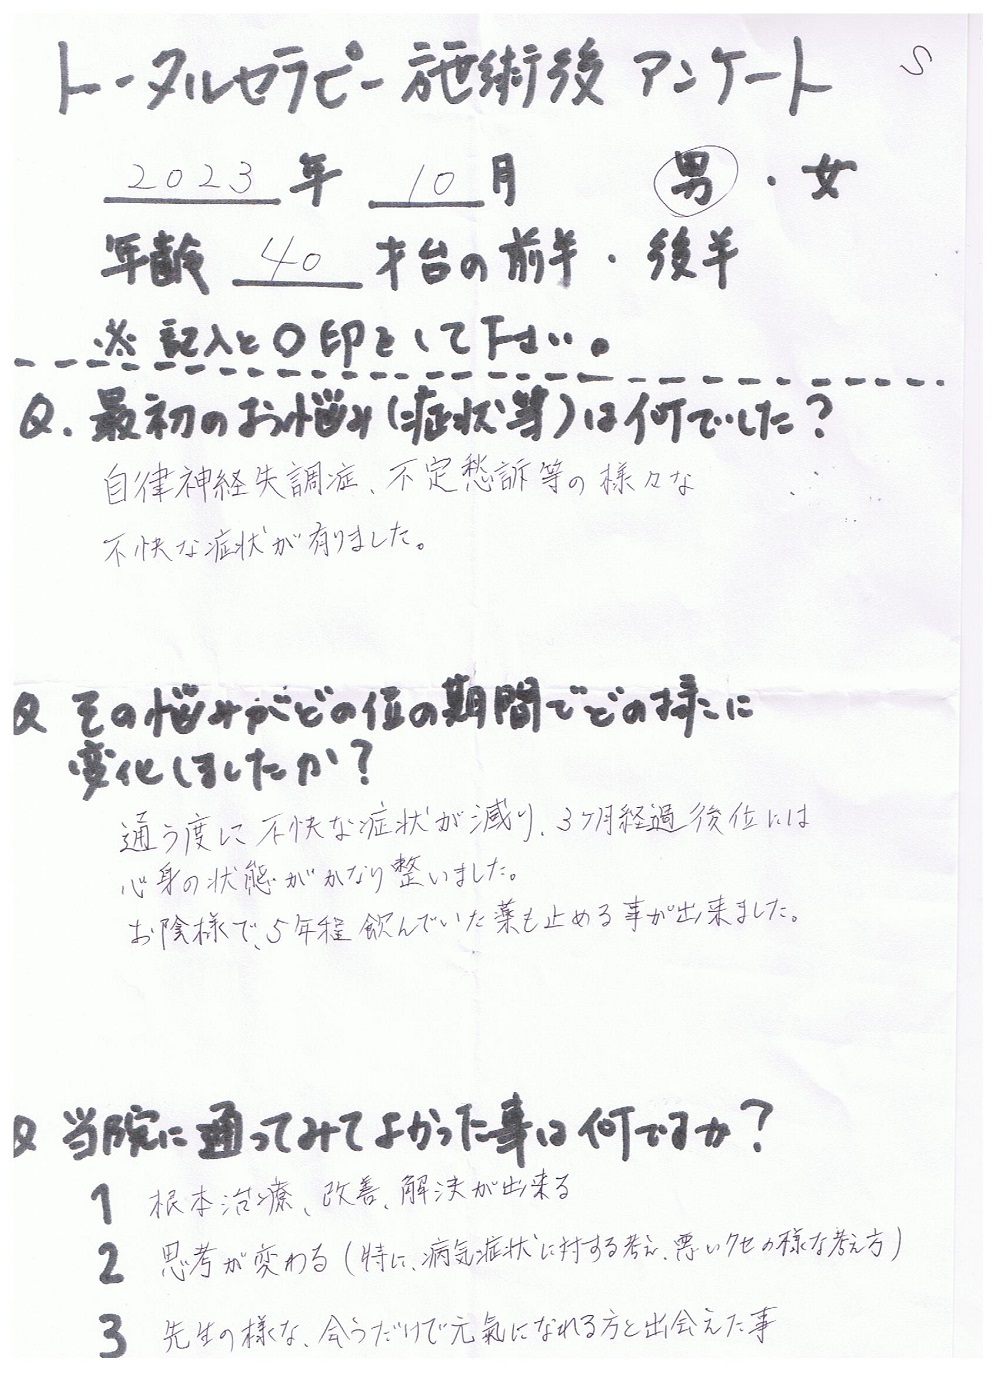 トータルセラピー施術後 アンケート
S
2023 年 10 月 男・女
年齢 40 才台の前半・後半
※ 記入と〇印をして下さい。
Q. 最初のお悩み(症状等)は何でしたか?
自律神経失調症、不定愁訴等の様々な
不快な症状が有りました。
Q その悩みがどの位の期間でどの様に
変化しましたか?
通う度に不快な症状が減り、3ヶ月経過後位には
心身の状態がかなり整いました。
お陰様で、5年程飲んでいた薬も止める事が出来ました。
Q 当院に通ってみてよかった事は何ですか?
1 根本治療、改善、解決が出来る
2 思考が変わる(特に、病気症状に対する考え、悪いクセの様な考え方)
3 先生の様な、会うだけで元氣になれる方と出会えた事